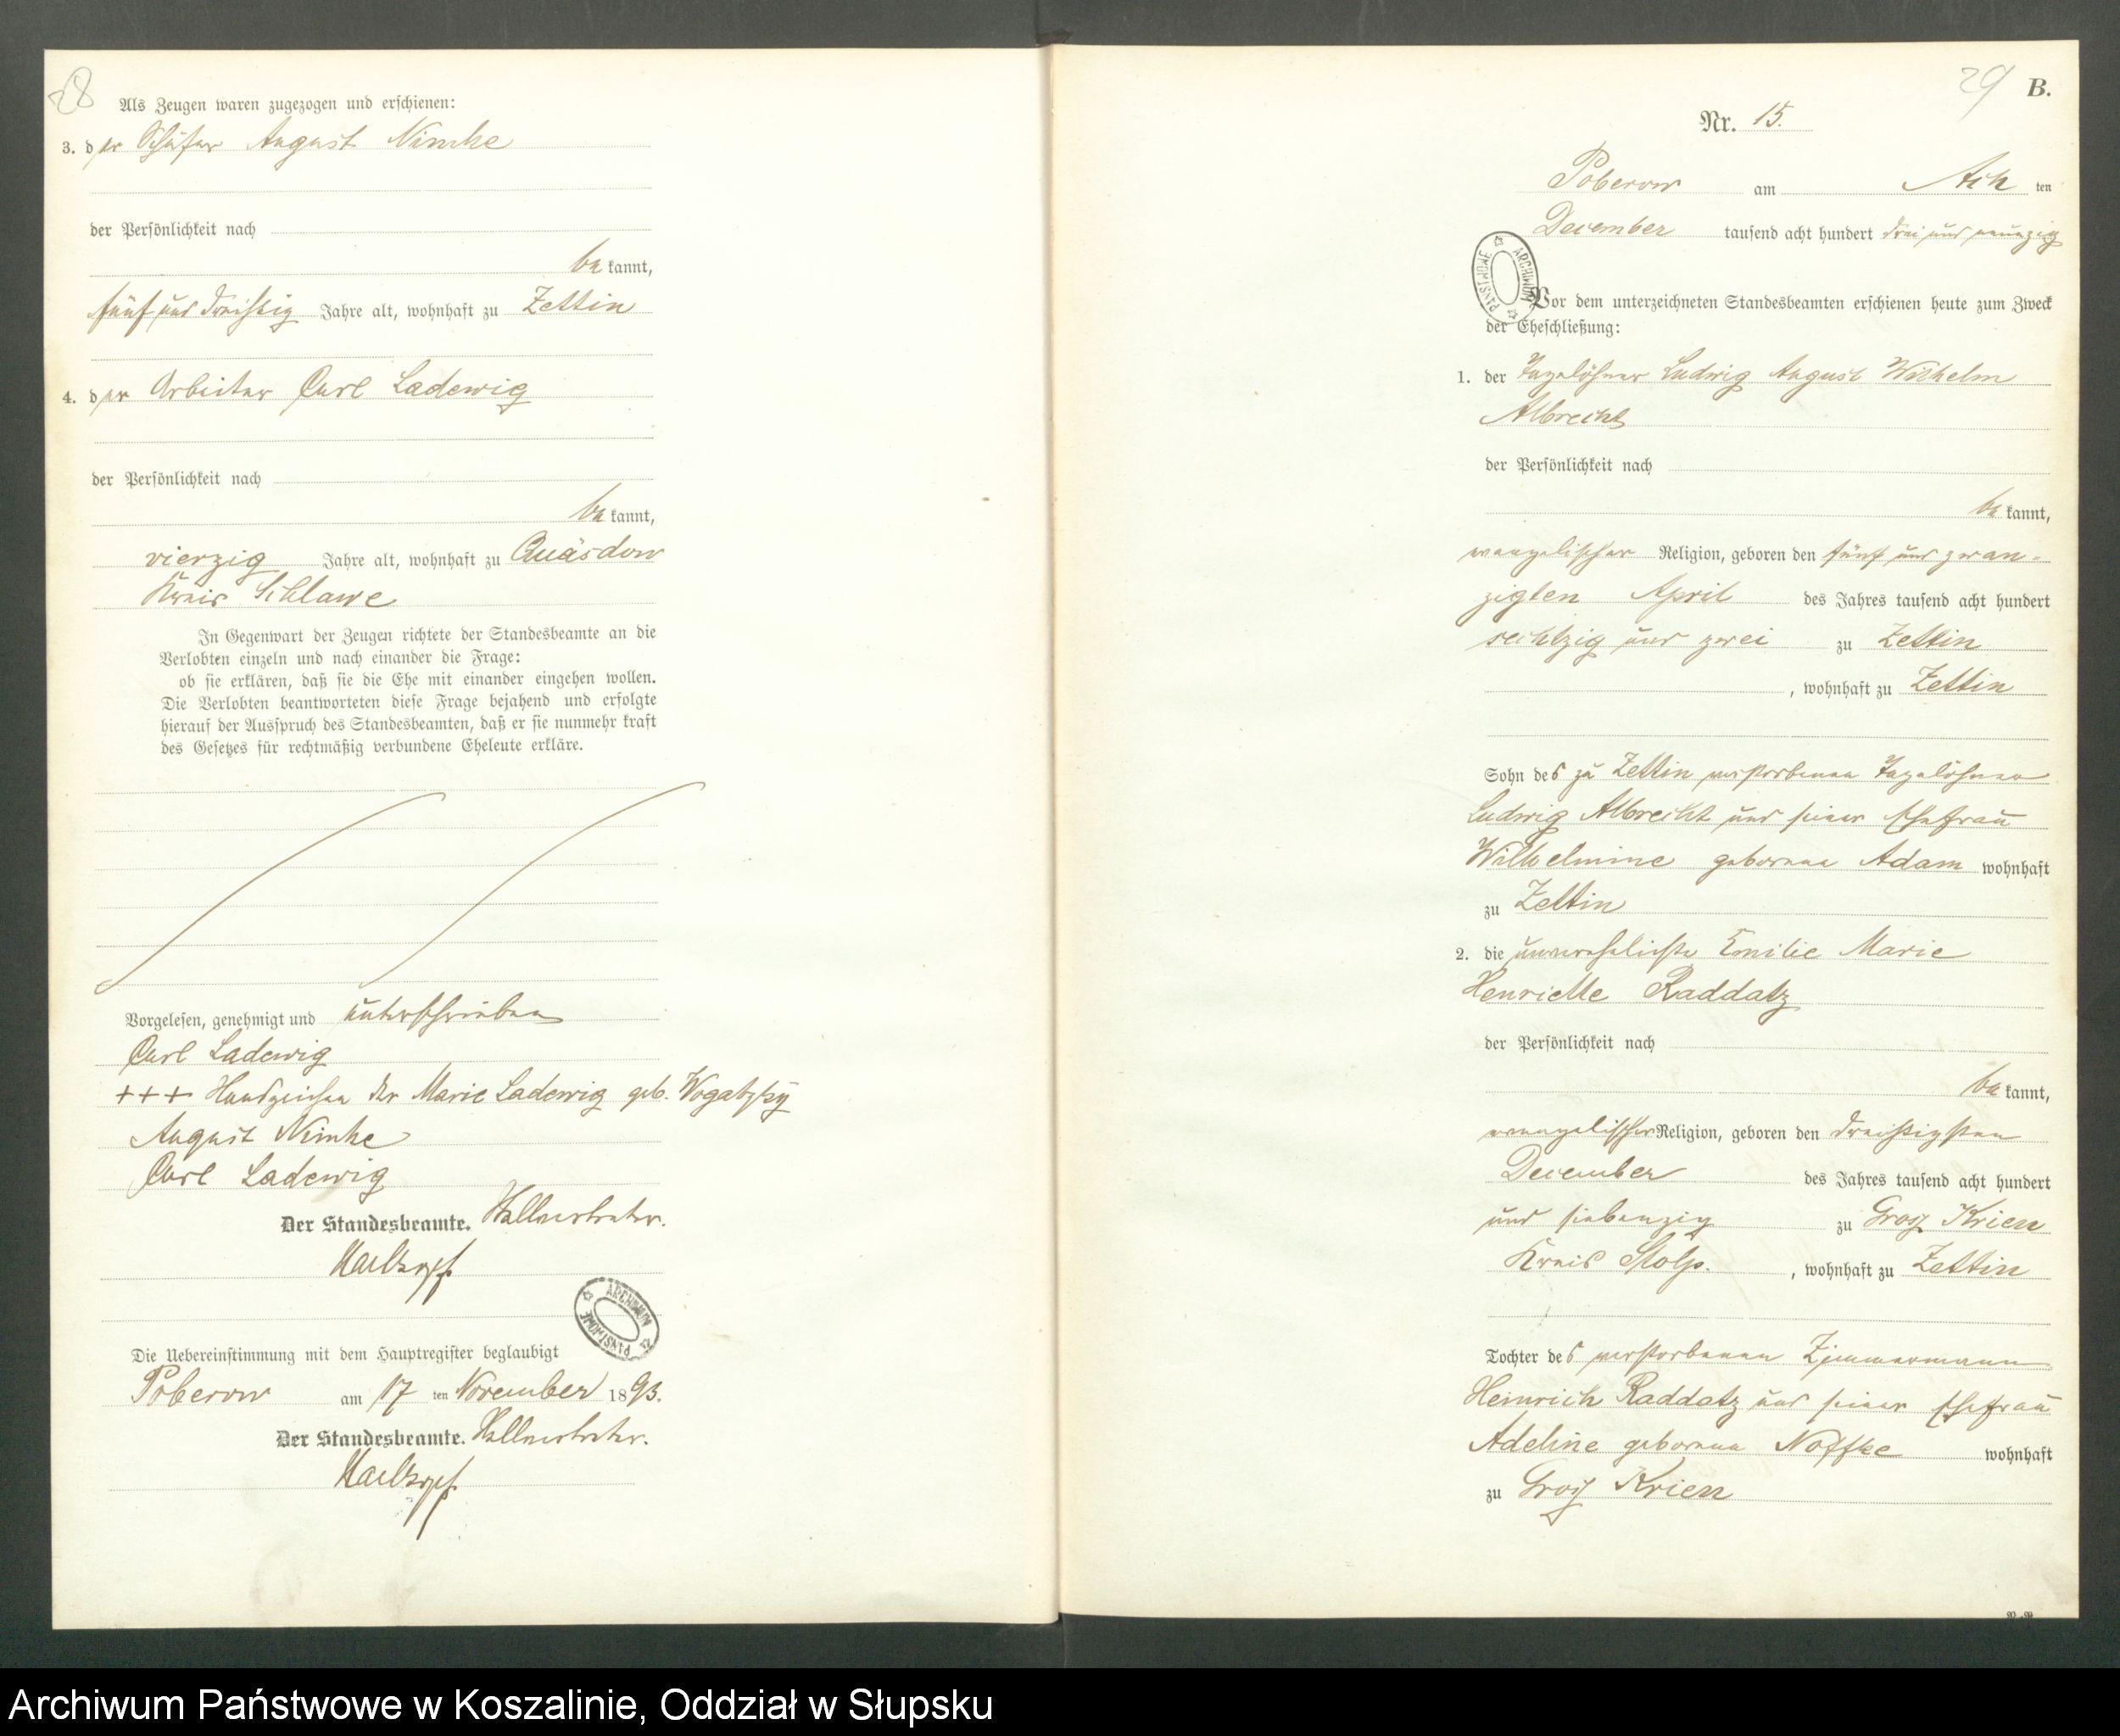 28
Als Zeugen waren zugezogen und erschienen:
3. der Schäfer August Nimke
der Persönlichkeit nach
bekannt,
fünf und dreißig Jahre alt, wohnhaft zu Zettin
4. der Arbeiter Carl Ladewig
der Persönlichkeit nach
bekannt,
vierzig Jahre alt, wohnhaft zu Quäsdow
Kreis Schlawe
In Gegenwart der Zeugen richtete der Standesbeamte an die
Verlobten einzeln und nach einander die Frage:
ob sie erklären, daß sie die Ehe mit einander eingehen wollen.
Die Verlobten beantworteten diese Frage bejahend und erfolgte
hierauf der Ausspruch des Standesbeamten, daß er sie nunmehr kraft
des Gesetzes für rechtmäßig verbundene Eheleute erkläre.
Vorgelesen, genehmigt und unterschrieben
Carl Ladewig
+++ Handzeichen der Marie Ladewig geb. Wogatzky
August Nimke
Carl Ladewig
Der Standesbeamte.
ARCHIWUM PAŃSTWOWE
Die Uebereinstimmung mit dem Hauptregister beglaubigt
Poberow am 17 ten November 1893.
Der Standesbeamte.
29 B.
Nr. 15.
Poberow am Ach ten
December tausend acht hundert drei und neunzig
ARCHIWUM PAŃSTWOWE
Vor dem unterzeichneten Standesbeamten erschienen heute zum Zweck
der Eheschließung:
1. der Tagelöhner Ludwig August Wilhelm
Albrecht
der Persönlichkeit nach
bekannt,
evangelischer Religion, geboren den fünf und zwan-
zigten April des Jahres tausend acht hundert
sechtzig und zwei zu Zettin
, wohnhaft zu Zettin
Sohn des zu Zettin verstorbenen Tagelöhner
Ludwig Albrecht und seiner Ehefrau
Wilhelmine geborene Adam wohnhaft
zu Zettin
2. die unverehelichte Emilie Marie
Henriette Raddatz
der Persönlichkeit nach
bekannt,
evangelischer Religion, geboren den dreißigsten
December des Jahres tausend acht hundert
und siebenzig zu Groß Krien
Kreis Stolp. , wohnhaft zu Zettin
Tochter des verstorbenen Zimmermann
Heinrich Raddatz und seiner Ehefrau
Adeline geborene Noffke wohnhaft
zu Groß Krien
Archiwum Państwowe w Koszalinie, Oddział w Słupsku